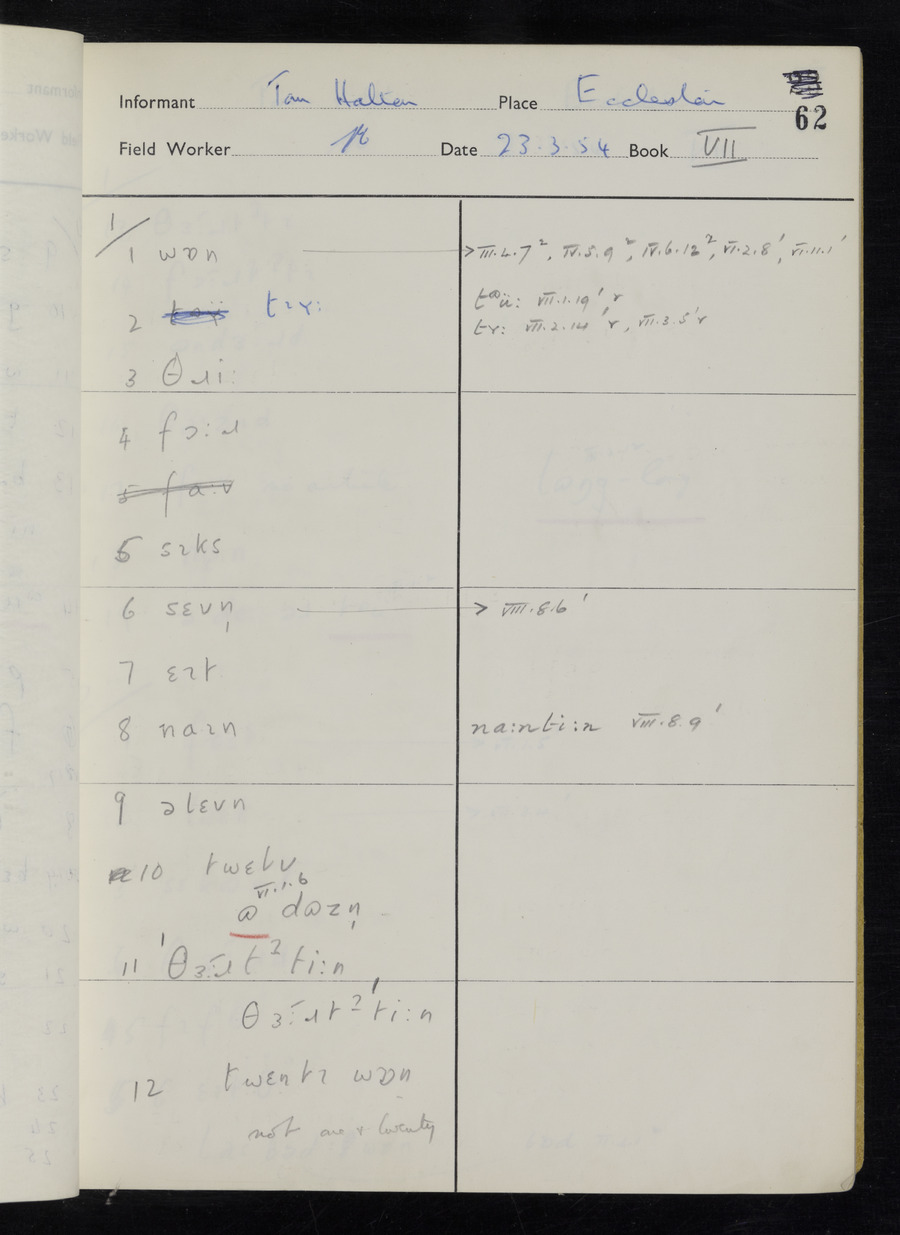 Informant Tom Halton Place Eccleston
62
Field Worker Date 23.3.54 Book VII
1/
1 wɒn → III.4.7², IV.5.9², IV.6.12², VI.2.8', VI.11.1'
2 tɪʏ:
VII.1.19' r
tʏ: VII.2.14' r, VII.3.5' r
3 θɹi:
4 fɔ:ɹ
5 fa:v
5 sɪks
6 sɛvn̩ → VIII.8.6'
7 ɛɪt
8 naɪn na:nti:n VIII.8.9'
9 əlɛvn
10 twɛlv
VI.1.6
ɷ dɷzn̩
11 'θɜ:ɹtˀti:n
θɜ:ɹtˀ'ti:n
12 twɛntɪ wɒn
not one & twenty